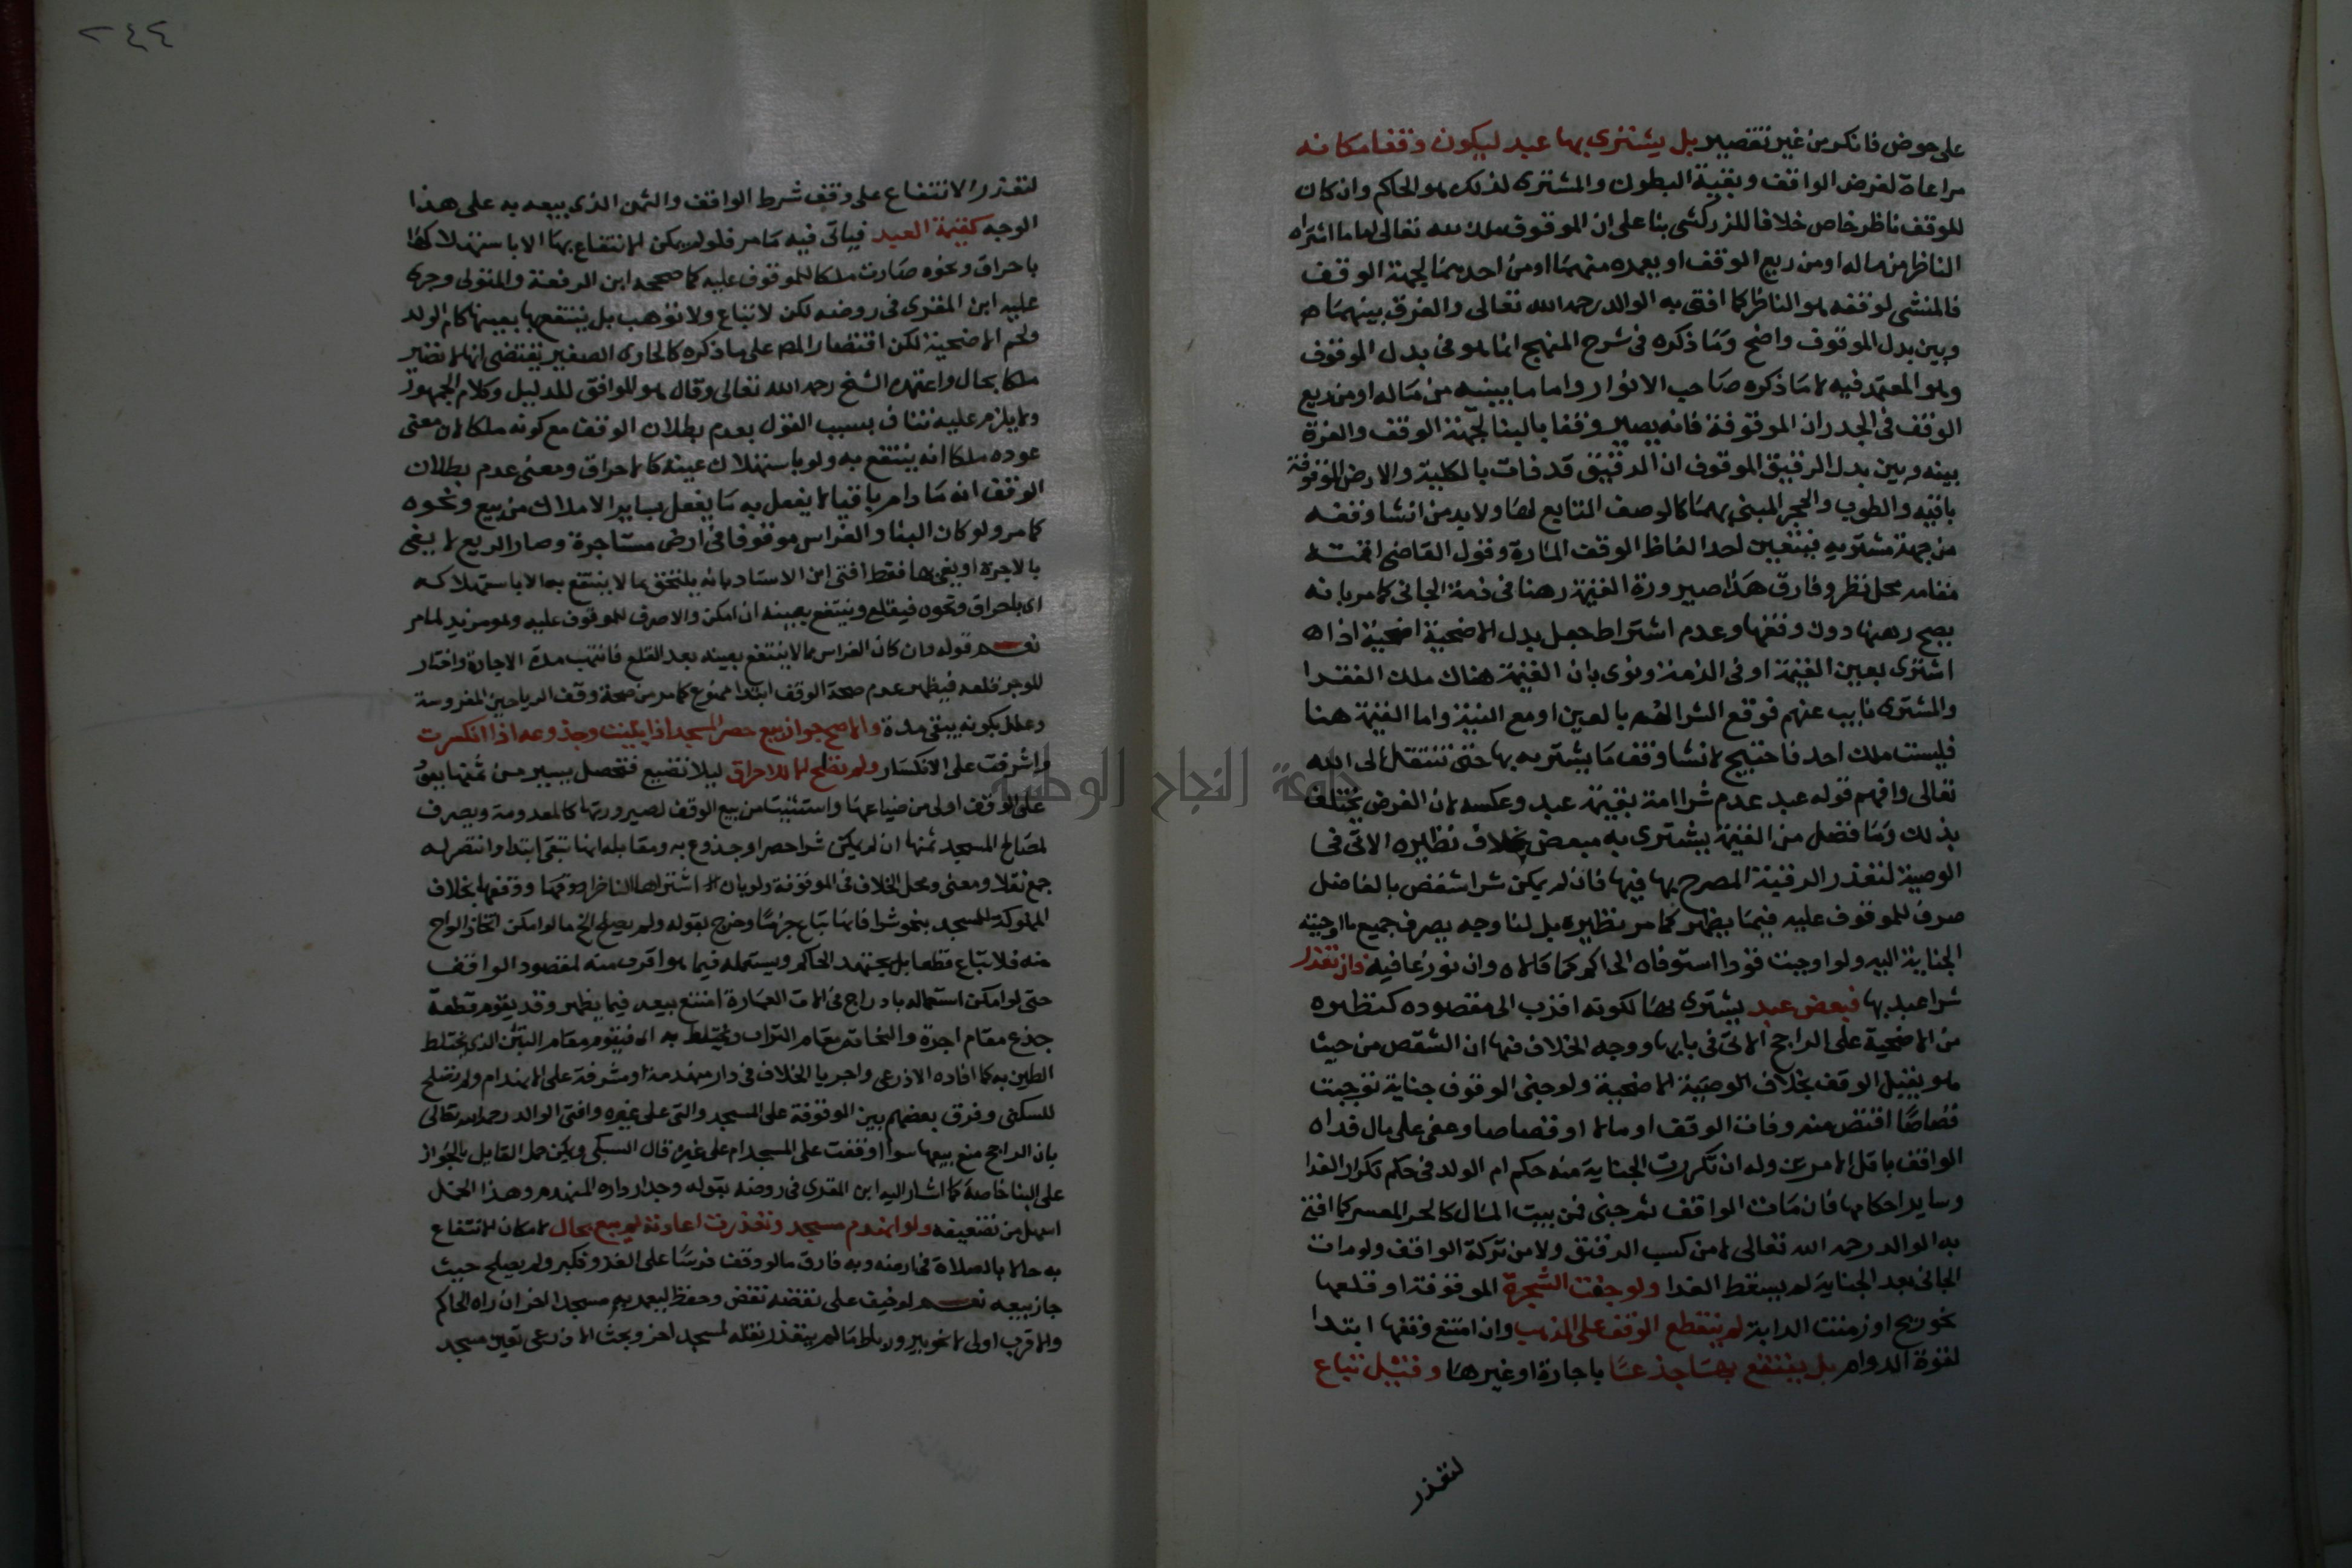 على حوض فانكر من غير تقصير بل يشترى بها عبد ليكون وقفا مكانه
مراعاة لغرض الواقف وبقية البطون والمشترى لذلك هو الحاكم وان كان
للوقف ناظر خاص خلافا للزركشى بنا على ان الموقوف ملك لله تعالى اما ما اشتراه
الناظر من ماله او من ريع الوقف او يعمره منهما او من احدهما لجهة الوقف
فالمنشى لوقفه هو الناظر كما افتى به الوالد رحمه الله تعالى والفرق بينهما
وبين بدل الموقوف واضح وما ذكره فى شرح المنهج انما هو فى بدل الموقوف
وهو المعتمد فيه لا ما ذكره صاحب الانوار واما ما يبنيه من ماله او من ريع
الوقف فى الجدران الموقوفة فانه يصير وقفا بالبنا لجهة الوقف والفرق
بينه وبين بدل الرقيق الموقوف ان الرقيق قد فات بالكلية والارض الموقوفة
باقية والطوب والحجر المبنى بهما كالوصف التابع لها ولا بد من انشا وقفه
من جهة مشتريه فيتعين احد الفاظ الوقف المارة وقول القاضى اقمته
مقامه محل نظر وفارق هذا صيرورة القيمة رهنا فى ذمة الجانى كما مر بانه
يصح رهنها دون وقفها وعدم اشتراط جعل بدل الاضحية اضحية اذا
اشترى بعين القيمة او فى الذمة ونوى بان القيمة هناك ملك الفقرا
والمشترى نايب عنهم فوقع الشرا لهم بالعين او مع النية واما القيمة هنا
فليست ملك احد فاحتيج لانشا وقف ما يشترى به بها حتى تنتقل الى الله
تعالى وافهم قوله عبد عدم شرا امة بقيمة عبد وعكسه لان الغرض يختلف
بذلك وما فضل من القيمة يشترى به مبعض بخلاف نظيره الاتى فى
الوصية لتعذر الرقبة المصرح بها فيها فان لم يمكن شرا شقص بالفاضل
صرف للموقوف عليه فيما يظهر كما مر نظيره بل لنا وجه بصرف جميع ما اوجبته
الجناية اليه ولو اوجبت قودا استوفاه الحاكم كما قالاه وان نوزعا فيه فان تعذر
شرا عبد بها فبعض عبد يشترى بها لكونه اقرب الى مقصوده كنظيره
من الاضحية على الراجح الاتى فى بابها ووجه الخلاف فيها ان الشقص من حيث
هو يقبل الوقف بخلاف الوصية الاضحية ولو جنى الموقوف جناية توجبت
قصاصا اقتص منه وفات الوقف او مالا او قصاصا وعفى على مال فداه
الواقف باقل الامرين وله ان تكررت الجناية منه حكم ام الولد فى حكم تكرار الفدا
وساير احكامها فان مات الواقف ثم جنى فمن بيت المال كالحر المعسر كما افتى
به الوالد رحمه الله تعالى لا من كسب الرقيق ولا من تركة الواقف ولو مات
الجانى بعد الجناية لم يسقط الفدا ولو جفت الشجرة الموقوفة او قلعها
نحو ريح او زمنت الدابة لم ينقطع الوقف على المذهب وان امتنع وقفها ابتدا
لقوة الدوام بل ينتفع بها جذعا باجارة او غيرها وقيل تباع
لتعذر
٢٤٤
لتعذر الانتفاع على وفق شرط الواقف والثمن الذى بيعه به على هذا
الوجه كقيمة العبد فياتى فيه ما مر فلو لم يمكن الانتفاع بها الا باستهلاكها
باحراق ونحوه صارت ملكا للموقوف عليه كما صححه ابن الرفعة والقمولى وجرى
عليه ابن المقرى فى روضه لكن لا تباع ولا توهب بل ينتفع بها بعينها كام الولد
ولحم الاضحية لكن اقتصار المص على ما ذكره كالحاوى الصغير يقتضى انها لا تصير
ملكا بحال واعتمده الشيخ رحمه الله تعالى وقال هو الموافق للدليل وكلام الجمهور
ولا يلزم عليه تناف بسبب القول بعدم بطلان الوقف مع كونه ملكا لان معنى
عوده ملكا انه ينتفع به ولو باستهلاك عينه كالاحراق ومعنى عدم بطلان
الوقف انه ما دام باقيا لا يفعل به ما يفعل بساير الاملاك من بيع ونحوه
كما مر ولو كان البنا والغراس موقوفا فى ارض مستاجرة وصار الريع لا يفى
بالاجرة او يفى بها فقط افتى ابن الاستاد بانه يلتحق بما لا ينتفع به الا باستهلاكه
اى باحراق ونحوه فيقلع وينتفع بعينه ان امكن والا صرف للموقوف عليه ومو مزيد لما مر
نعم قوله وان كان الغراس مما لا ينتفع بعينه بعد القلع فانتهت مدة الاجارة واختار
الموجر قلعه فيظهر عدم صحة الوقف ابتدا ممنوع كما مر من صحة وقف الرياحين المغروسة
وعلل بكونه يبقى مدة والاصح جواز بيع حصر المسجد اذا بليت وجذوعه اذا انكسرت
واشرفت على الانكسار ولم تصلح الا للاحراق ليلا تضيع فتحصل يسير من ثمنها يعود
على الوقف اولى من ضياعها واستثنيت من بيع الوقف لصيرورتها كالمعدومة ويصرف
لمصالح المسجد ثمنها ان لم يمكن شرا حصر او جذوع به ومقابله انها تبقى ابتدا وانتصر له
جمع نقلا ومعنى ومحل الخلاف فى الموقوفة ولو بان اشتراها الناظر ووقفها بخلاف
المملوكة للمسجد بنحو شرا فانها تباع جزما وخرج بقوله ولم يصلح الخ ما لو امكن اتخاذ الواح
منه فلا تباع قطعا بل يجتهد الحاكم ويستعمله فيما هو اقرب منه لمقصود الواقف
حتى لو امكن استعماله بادراج فى الات العمارة امتنع بيعه فيما يظهر وقد يقوم قطعة
جذع مقام اجرة والنحاتة مقام التراب ويختلط به اى فيقوم مقام التبن الذى يختلط
الطين به كما افاده الاذرعى واجريا الخلاف فى دار منهدمة او مشرفة على الانهدام ولم تصلح
للسكنى وفرق بعضهم بين الموقوفة على المسجد والتى على غيره وافتى الوالد رحمه الله تعالى
بان الراجح منع بيعها سوا اوقفت على المسجد ام على غيره قال السبكى ويمكن حمل القايل بالجواز
على البنا خاصة كما اشار اليه ابن المقرى فى روضه بقوله وجدار داره المنهدم وهذا الحمل
اسهل من تضعيفه ولو انهدم مسجد وتعذرت اعادته لم يبع بحال لامكان الانتفاع
به حالا بالصلاة فى ارضه وبه فارق ما لو وقف فرسا على الغزو فكبر ولم يصلح حيث
جاز بيعه نعم لو خيف على نقضه نقض وحفظ ليعمر به مسجدا اخر ان راه الحاكم
والاقرب اولى لا نحو بير ورباط ما لم يتعذر نقله لمسجد اخر وبحث الاذرعى تعين مسجد
جامعة النجاح الوطنية